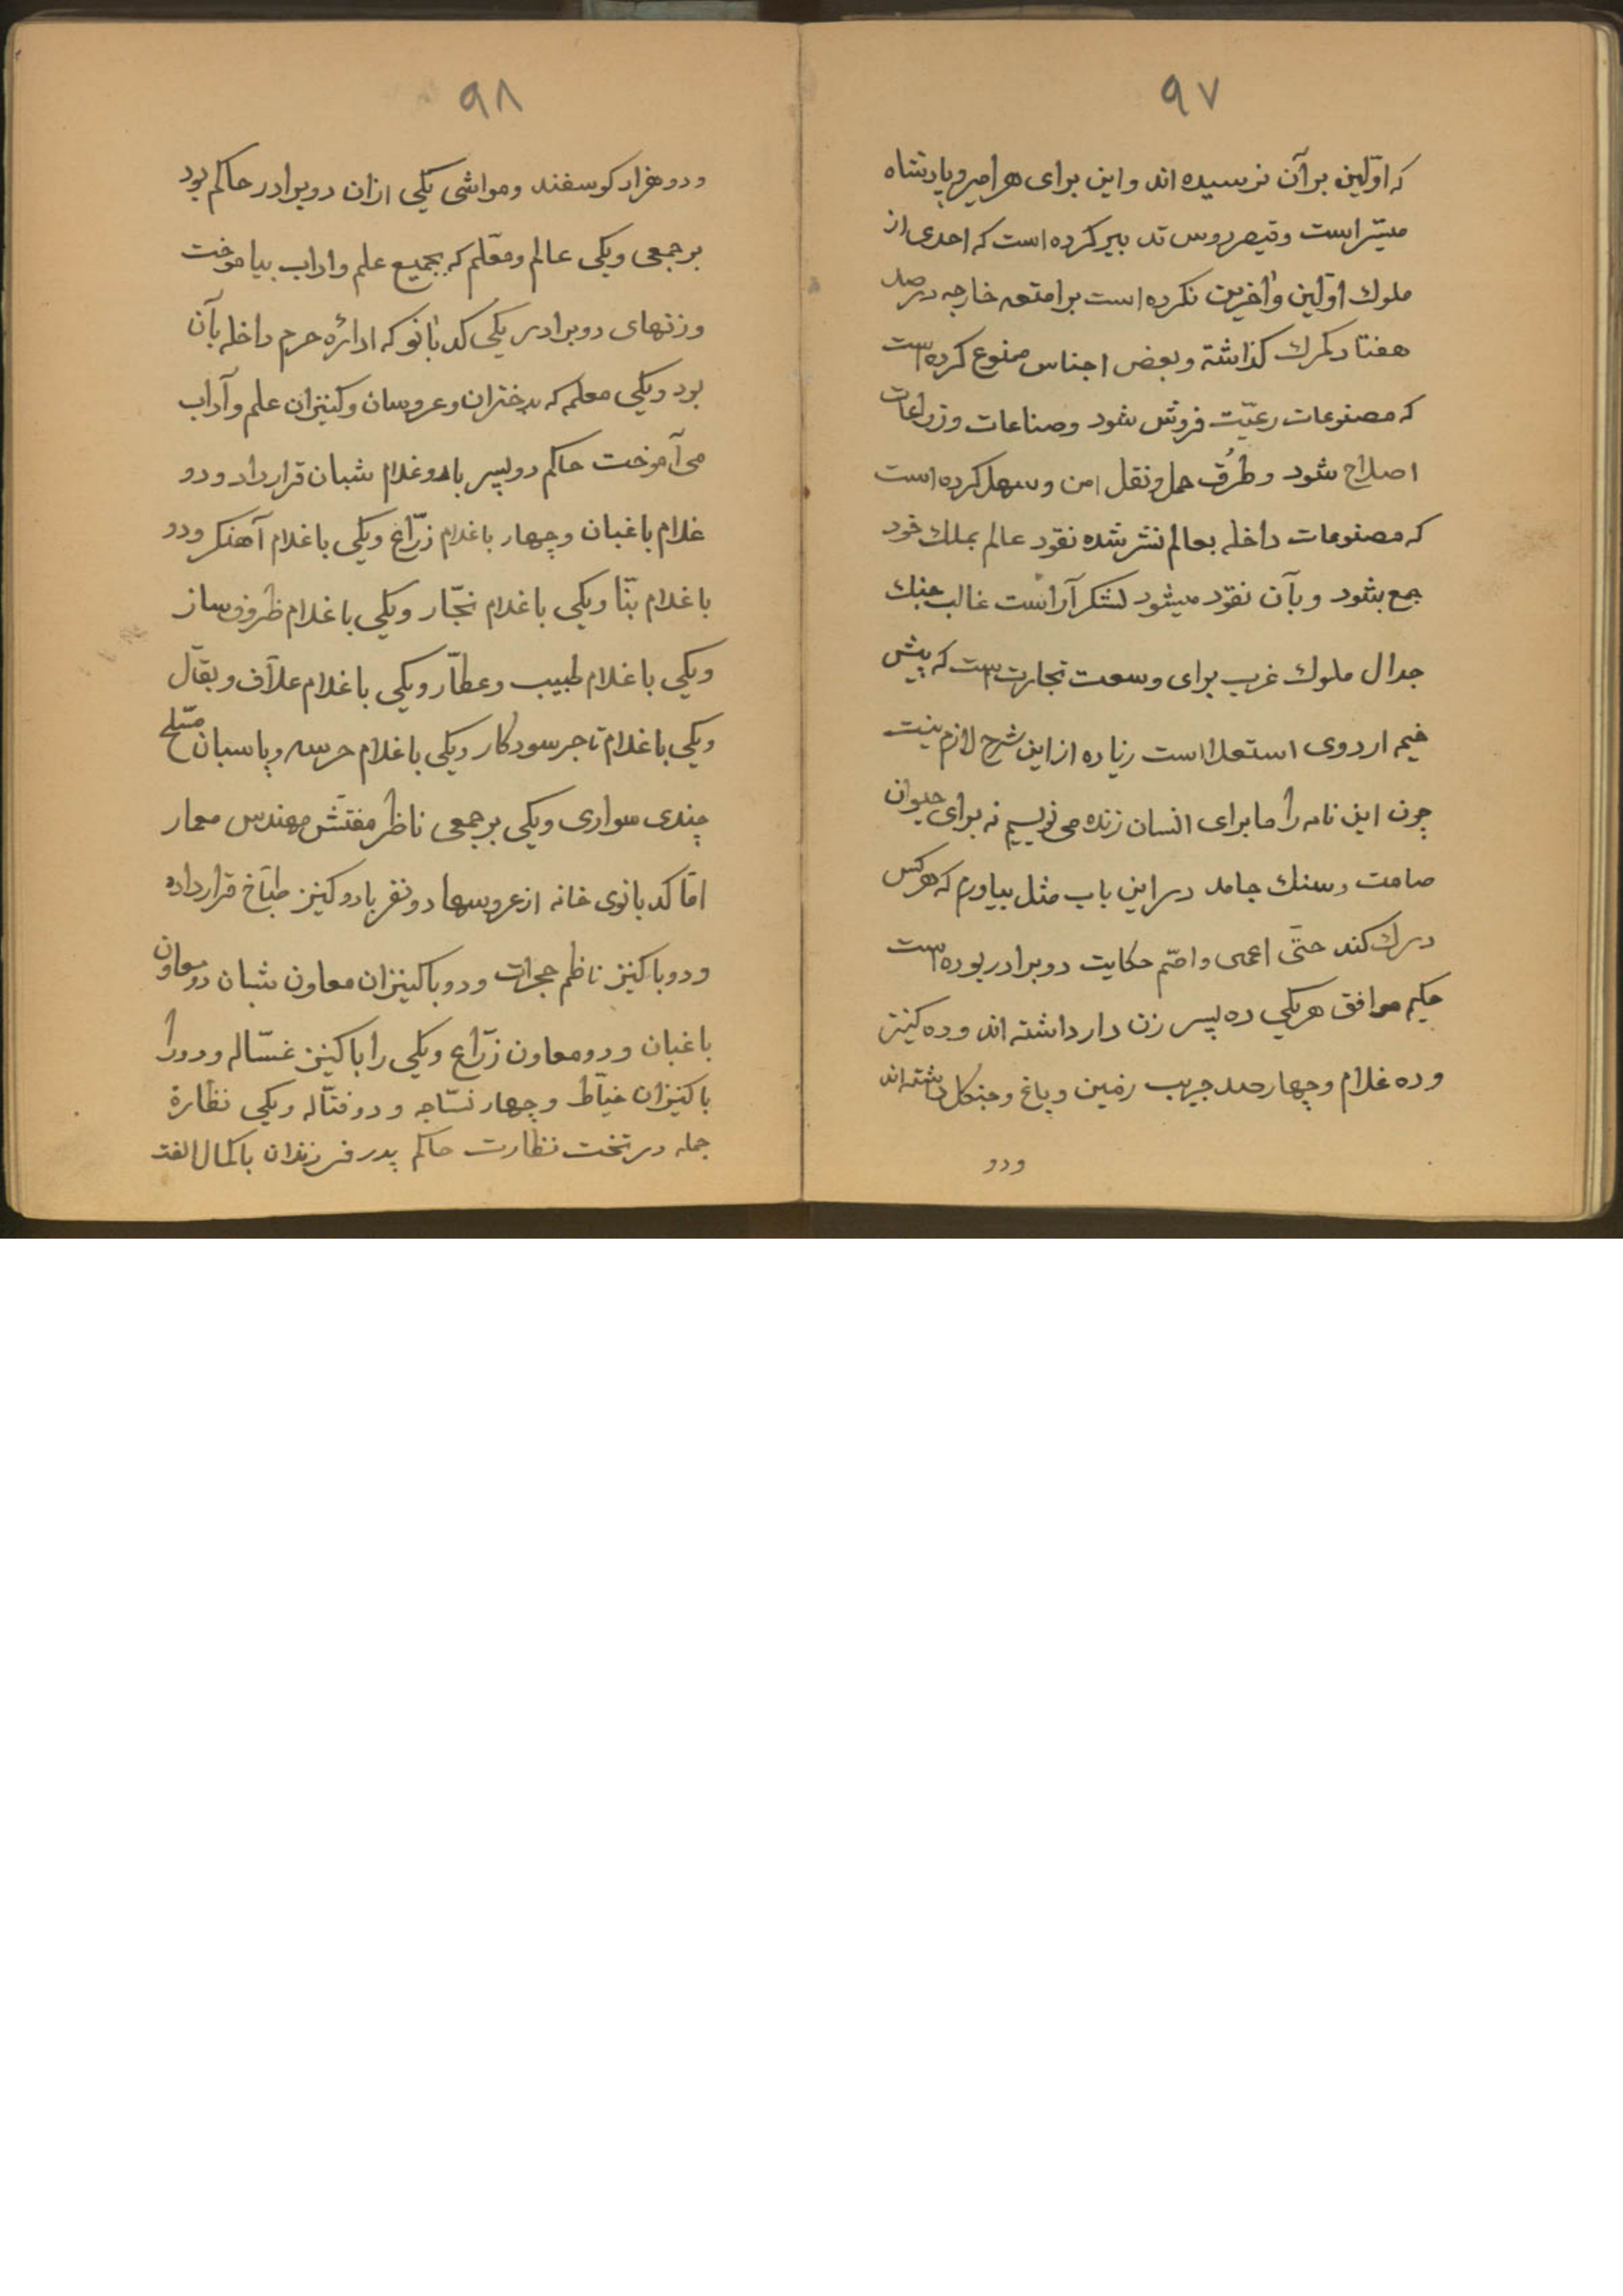 ۹۷
که اوّلین برآن نرسیده اند واین برای هر امیر و پادشاه
میسّر است وقیصر روس تدبیر کرده است که احدی از
ملوك اوّلین وآخرین نکرده است بر امتعه خارجه در صد
هفتاد کمرك کذاشته وبعض اجناس ممنوع کرده است
که مصنوعات رعیّت فروش شود وصناعات وزراعات
اصلاح شود وطُرُق حمل ونقل امن وسهل کرده است
که مصنوعات داخله بعالم نشر شده نقود عالم بملك خود
جمع بشود وبآن نقود میشود لشکر آراست غالب جنك
جدال ملوك غرب برای وسعت تجارت است که پیش
خیم اردوی استعلا است زیاده از این شرح لازم نیست
چون این نامه را ما برای انسان زنده می نویسیم نه برای حیوان
صامت وسنك جامد در این باب مثل بیاورم که هرکس
درك کند حتّی اعمی واصّم حکایت دو برادر بوده است
حکیم موافق هریکی ده پسر زن دار داشته اند وده کنیز
وده غلام وچهار صد جریب زمین وباغ وجنکل داشته اند
ودو
۹۸
ودو هزار کوسفند ومواشی یکی ازان دو برادر حاکم بود
بر جمعی ویکی عالم ومعّلم که بجمیع علم واداب بیاموخت
وزنهای دو برادر یکی کدبانو که ادارهٔ حرم داخله بآن
بود ویکی معلمه که بدختران وعروسان وکنیزان علم وآداب
می آموخت حاکم دو پسر با دو غلام شبان قرار داد ودو
غلام باغبان وچهار با غلام زرّاع ویکی با غلام آهنکر ودو
با غلام بنّا ویکی با غلام نجّار ویکی با غلام ظروف ساز
ویکی با غلام طبیب وعطّار ویکی با غلام علاّف وبقّال
ویکی با غلام تاجر سودکار ویکی با غلام حرسه وپاسبان مسّلح
چندی سواری ویکی بر جمعی ناظر مفتّش مهندس معمار
امّا کدبانوی خانه از عروسها دو نفر با دو کنیز طبّاخ قرار داده
ودو با کنیز ناظم حجرات ودو با کنیزان معاون شبان دو معاون
باغبان ودو معاون زرّاع ویکی را با کنیز غسّاله ودو را
با کنیزان خیّاط وچهار نسّاجه ودو فتّاله ویکی نظارة
جمله در تخت نظارت حاکم پدر فرزندان با کمال الفت